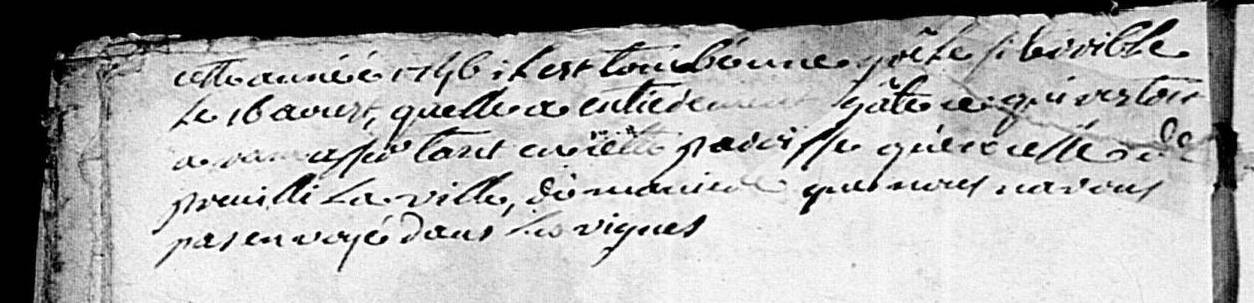 cette année 1746 il est tombé une grêle si terrible
le 16 aoust, quelle a entierement gâté ce qui restoit
a ramasser tant en cette paroisse qu'en celle de
preuilli la ville, de maniere que nous navons
pas envoyé dans les vignes